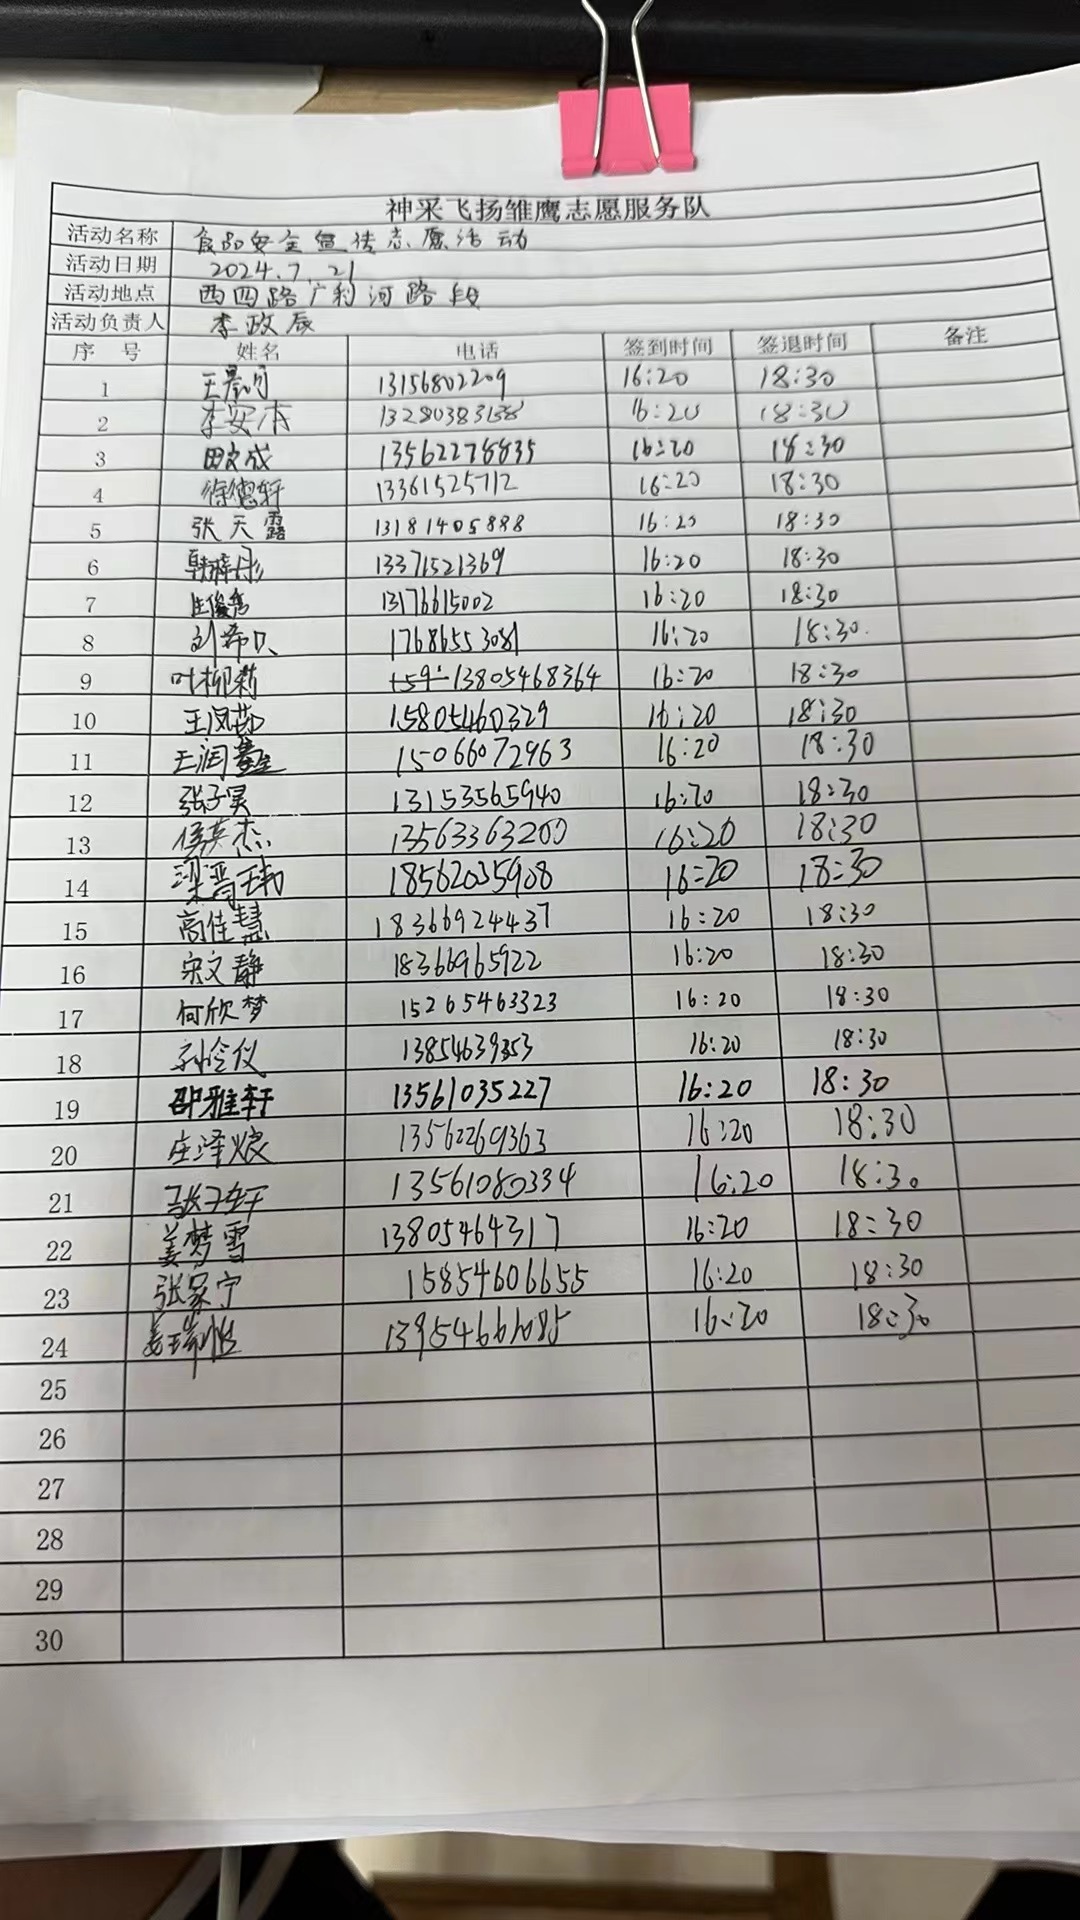 神采飞扬雏鹰志愿服务队
活动名称 食品安全宣传志愿活动
活动日期 2024.7.21
活动地点 西四路广利河路段
活动负责人 李政辰
序 号 姓名 电话 签到时间 签退时间 备注
1 王 13156802209 16:20 18:30
2 李安 16:20 18:30
3 田文成 13562278835 16:20 18:30
4 徐德轩 13361525712 16:20 18:30
5 张天露 13181405888 16:20 18:30
6 韩梓彤 13371521369 16:20 18:30
7 13176615002 16:20 18:30
8 刘希 17686553081 16:20 18:30
9 叶柳莉 13805468364 16:20 18:30
10 王凤茹 15805460329 16:20 18:30
11 王润鑫 15066072963 16:20 18:30
12 张子昊 13153565940 16:20 18:30
13 侯英杰 13563363200 16:20 18:30
14 梁晋玮 18562035908 16:20 18:30
15 高佳慧 18366924437 16:20 18:30
16 宋文静 18366965922 16:20 18:30
17 何欣梦 15265463323 16:20 18:30
18 刘伶仪 13854639353 16:20 18:30
19 邵雅轩 13561035227 16:20 18:30
20 庄泽煜 13562269363 16:20 18:30
21 张子轩 13561080334 16:20 18:30
22 姜梦雪 13805464317 16:20 18:30
23 张家宁 15854606655 16:20 18:30
24 姜瑞 16:20 18:30
25
26
27
28
29
30